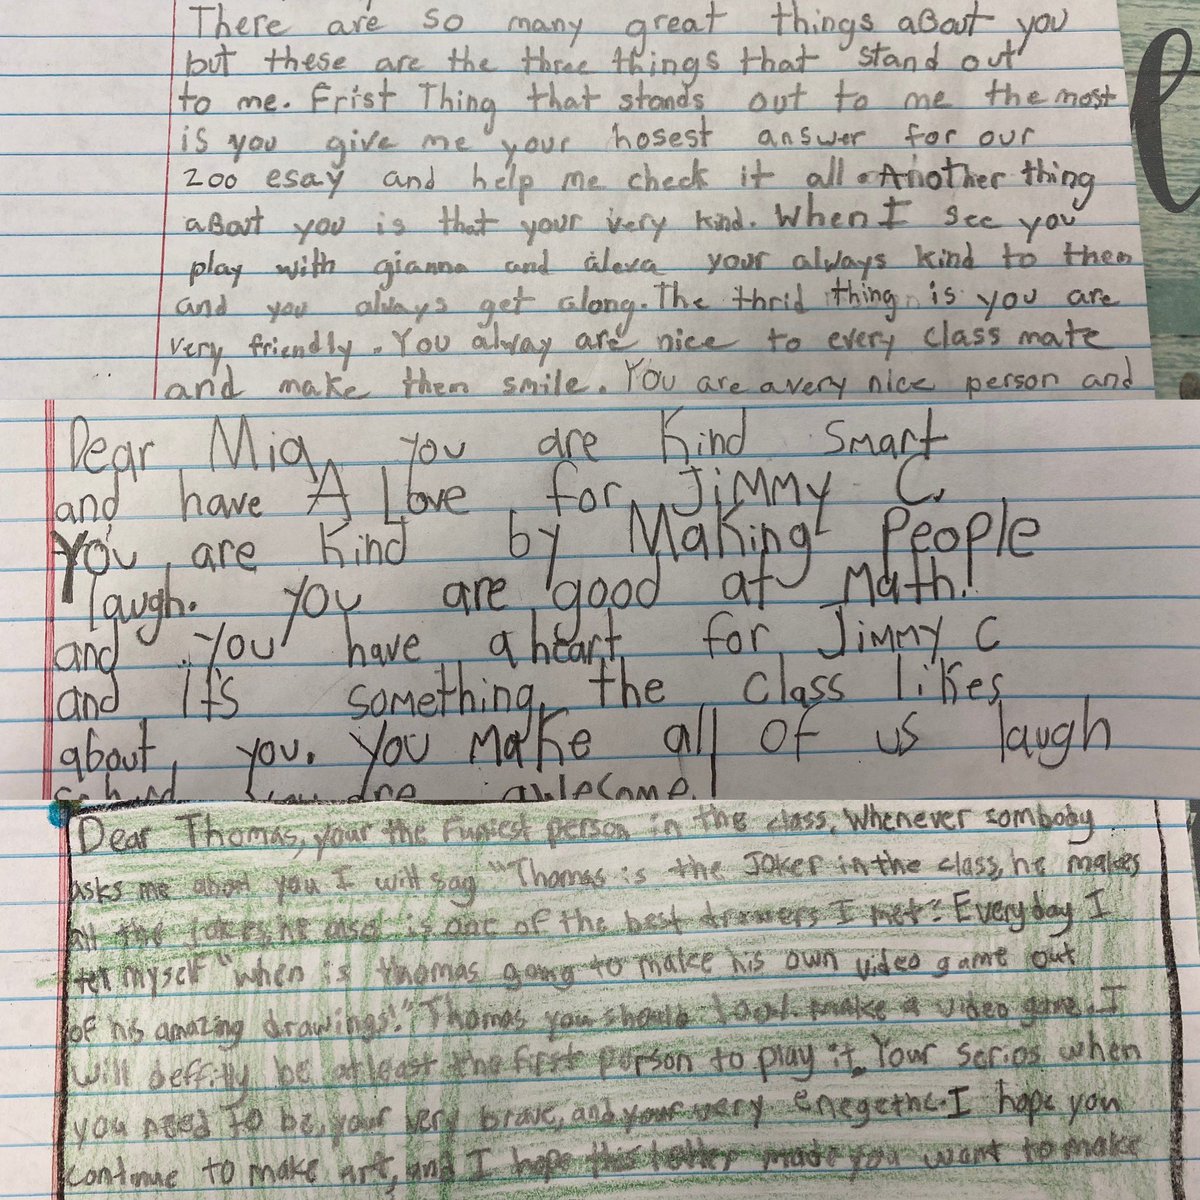 There are so many great things aBout you
but these are the three things that stand out
to me. Frist Thing that stands out to me the most
is you give me your hosest answer for our
zoo esay and help me check it all. Another thing
aBout you is that your very kind. When I see you
play with gianna and alexa your always kind to them
and you always get along. The thrid thing is you are
very friendly. You alway are nice to every class mate
and make them smile. You are a very nice person and
Dear Mia, you are Kind Smart
and have A Love for JiMMY C.
You are Kind by Making People
laugh. You are good at Math!
and you have a heart for JiMMY C
and It's something the class likes
about you. You Make all of us laugh
you are awesome!
Dear Thomas, your the Funiest person in the class. Whenever sombody
asks me about you I will say "Thomas is the Joker in the class, he makes
all the jokes, he also is one of the best drawers I met". Everyday I
tell myself "when is thomas going to make his own video game out
of his amazing drawings!" Thomas you should make a video game. I
will deffitly be atleast the first person to play it. Your serios when
you need to be, your very brave, and your very enegetic. I hope you
continue to make art, and I hope this letter made you want to make